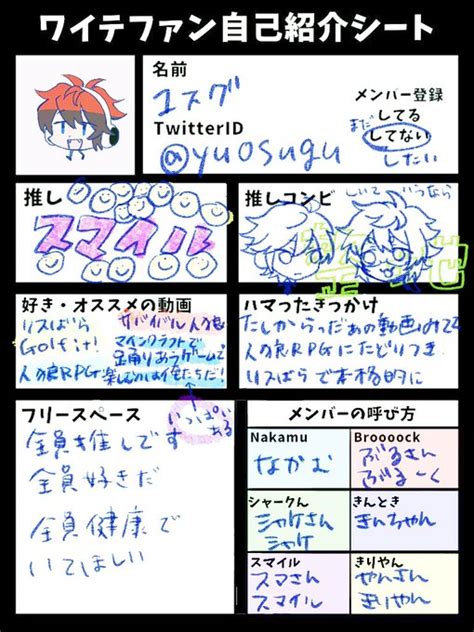 ワイテファン自己紹介シート
名前
ユスグ
TwitterID
@yuosugu
メンバー登録
まだ
してる
してない
したい
推し
スマイル
推しコンビ
しいていうなら
好き・オススメの動画
リスばら
Golf it!
人の良RPG
サバイバル
マインクラフトで
ハマったきっかけ
たしからっだぁの動画みてて
RPGにたどりつき
リスばらで本格的に
フリースペース
いっぱい
ある
全員推しです
全員好きだ
全員健康で
いてほしい
メンバーの呼び方
Nakamu
なかむ
Broooock
ぶるさん
ぶるーく
シャークん
シャケさん
シャケ
きんとき
きんちゃん
スマイル
スマさん
スマイル
きりやん
やんさん
きりやん